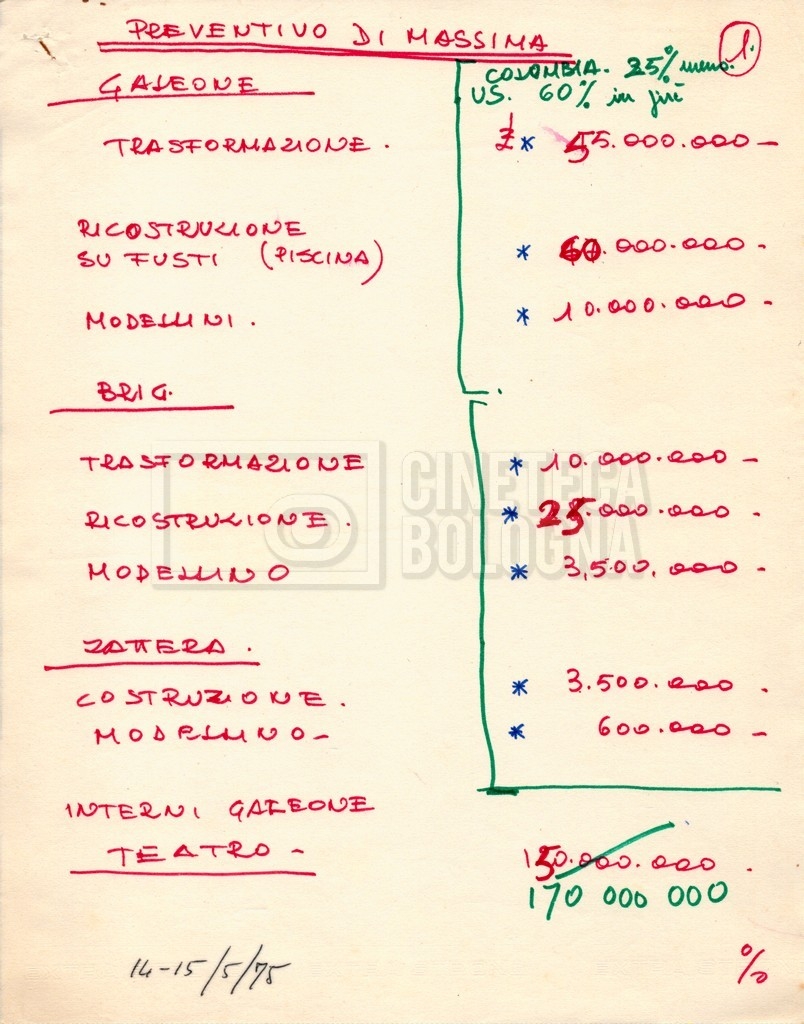 PREVENTIVO DI MASSIMA
1.
GALEONE
COLOMBIA. 25% meno.
US. 60% in più
TRASFORMAZIONE. £ * 55.000.000-
RICOSTRUZIONE
SU FUSTI (PISCINA) * 60.000.000-
MODELLINI. * 10.000.000-
BRIG.
TRASFORMAZIONE * 10.000.000-
RICOSTRUZIONE. * 25.000.000-
MODELLINO * 3,500.000-
ZATTERA.
COSTRUZIONE. * 3.500.000.
MODELLINO- * 600.000-
INTERNI GALEONE
TEATRO- 150.000.000.
170 000 000
14-15/5/75
%
CINETECA
BOLOGNA